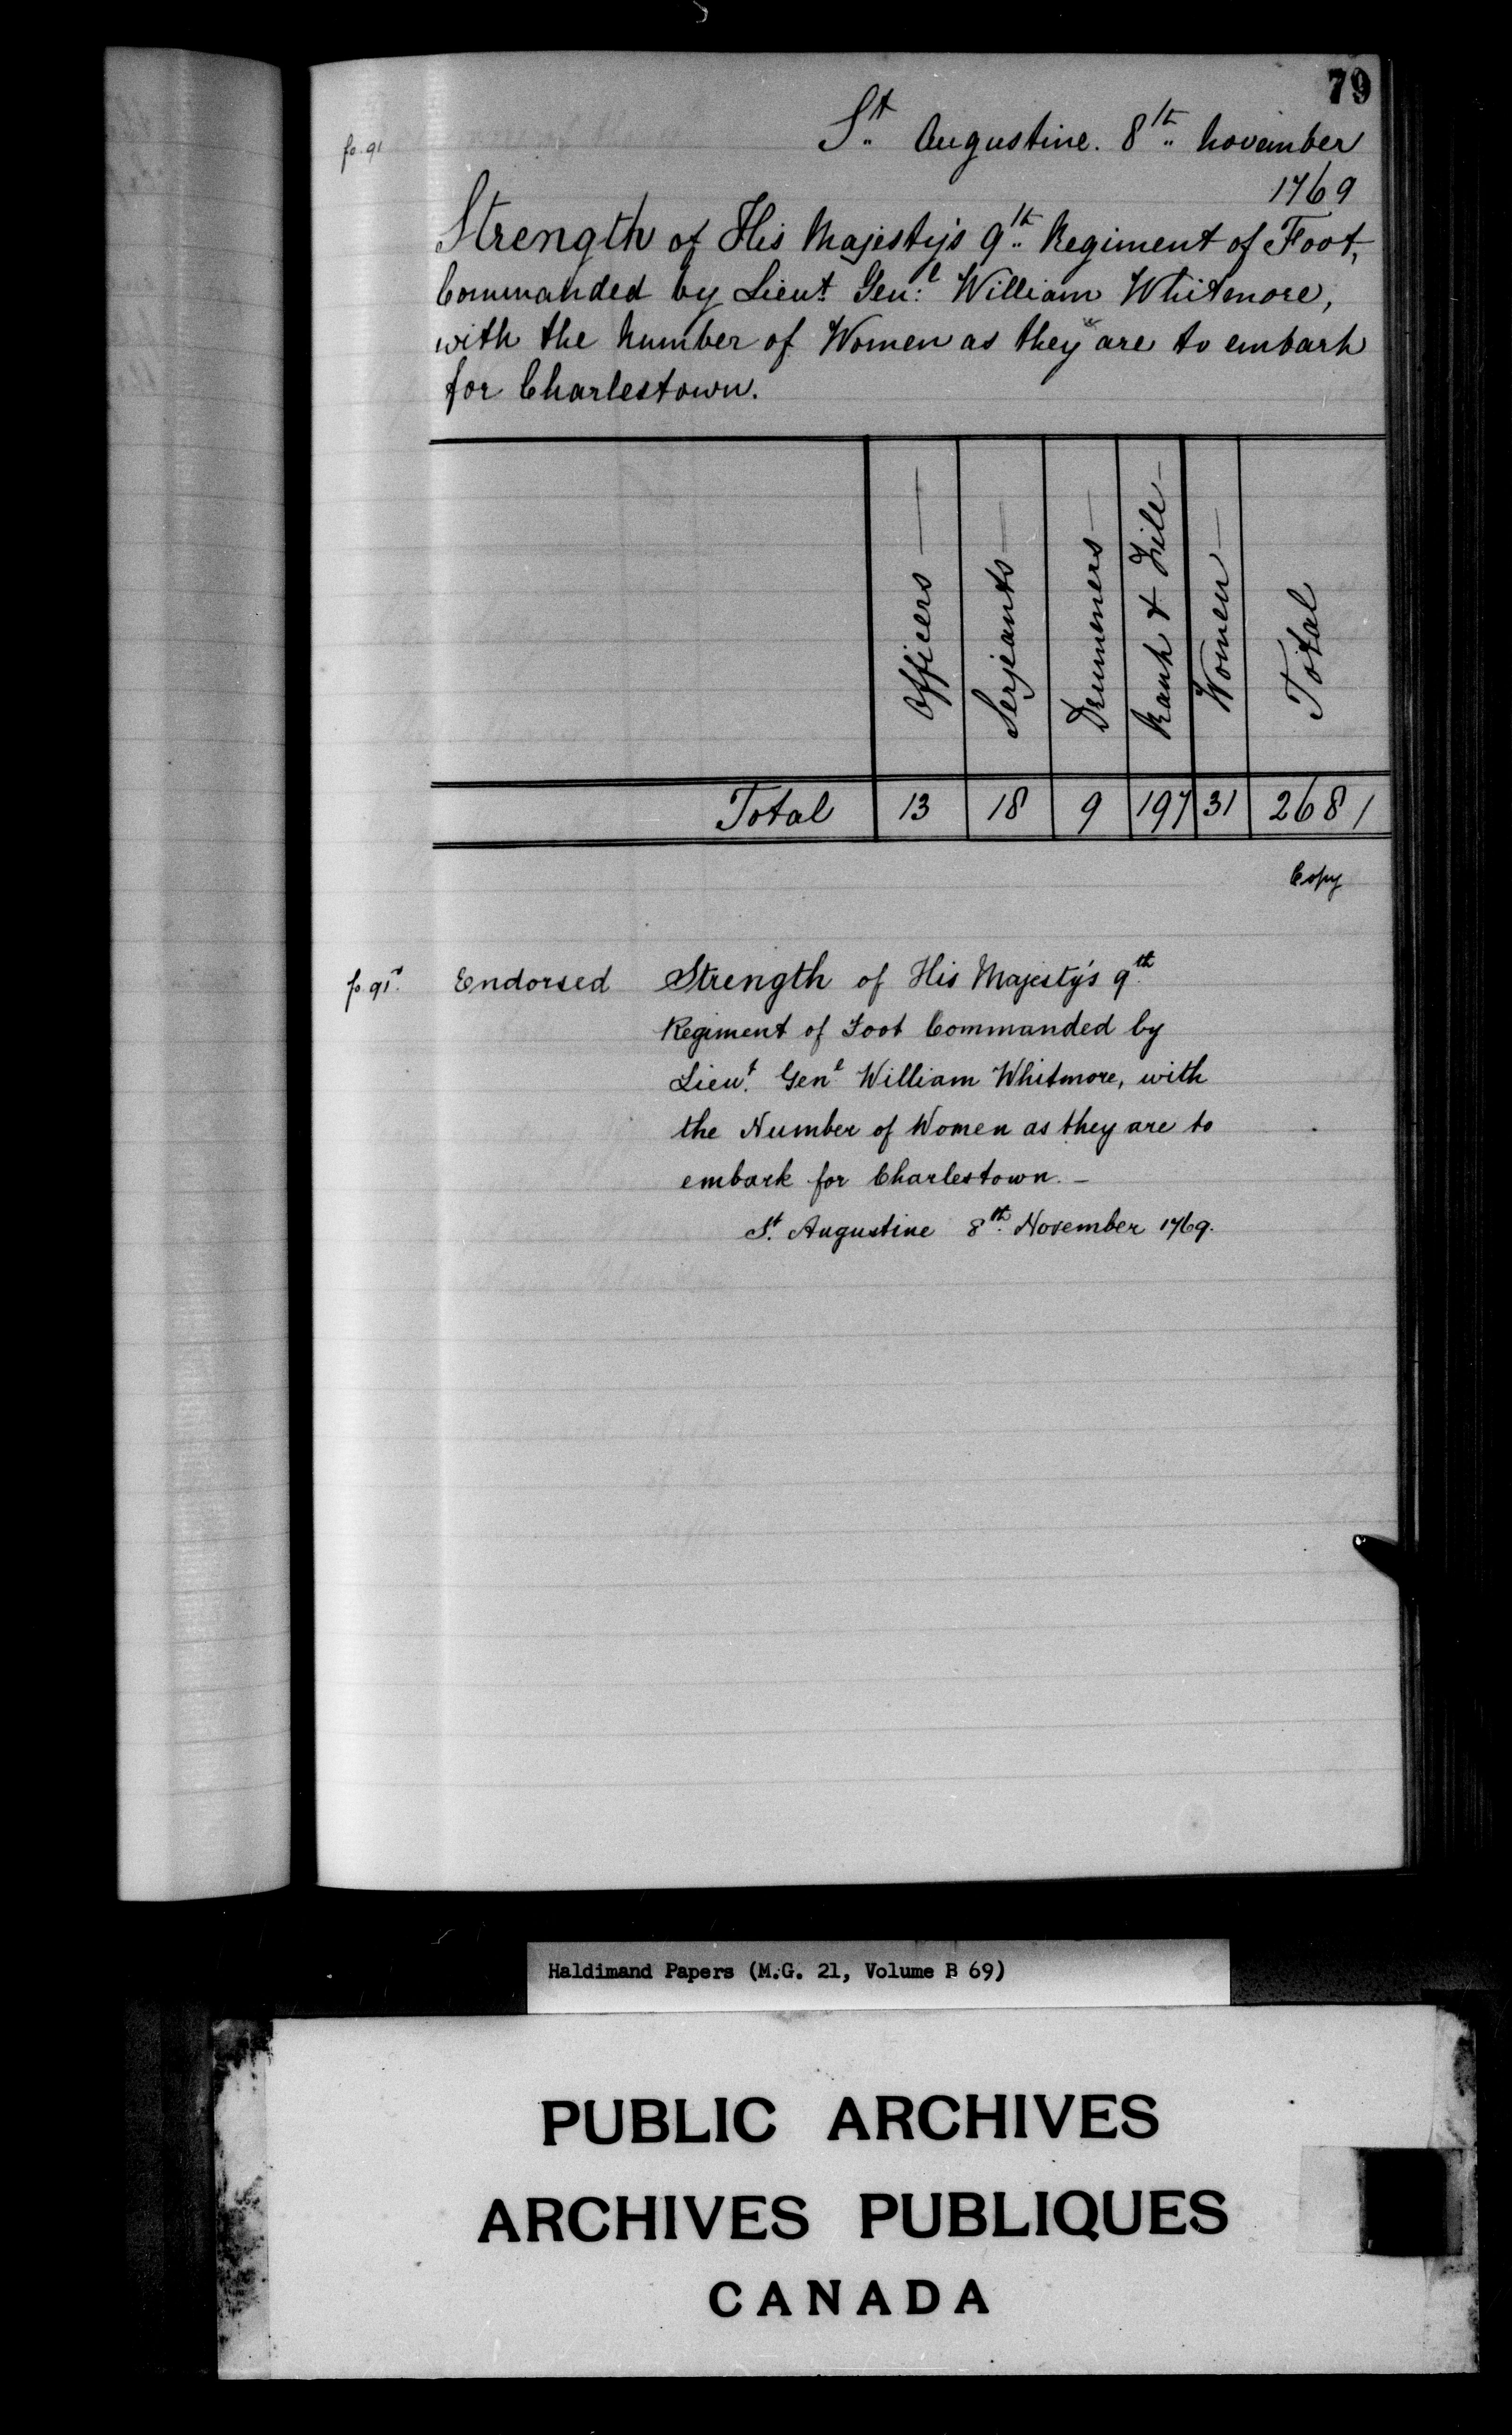 79
fo. 91
St. Augustine. 8th. November
1769
Strength of His Majesty's 9th. Regiment of Foot,
Commanded by Lieut. Gen:l William Whitmore,
with the Number of Women as they are to embark
for Charlestown.
Officers Serjeants Drummers Rank & File Women Total
Total 13 18 9 197 31 268 /
Copy
fo. 91v. Endorsed Strength of His Majesty's 9th.
Regiment of Foot Commanded by
Lieut. Genl. William Whitmore, with
the Number of Women as they are to
embark for Charlestown. –
St. Augustine 8th. November 1769.
Haldimand Papers (M.G. 21, Volume B 69)
PUBLIC ARCHIVES
ARCHIVES PUBLIQUES
CANADA